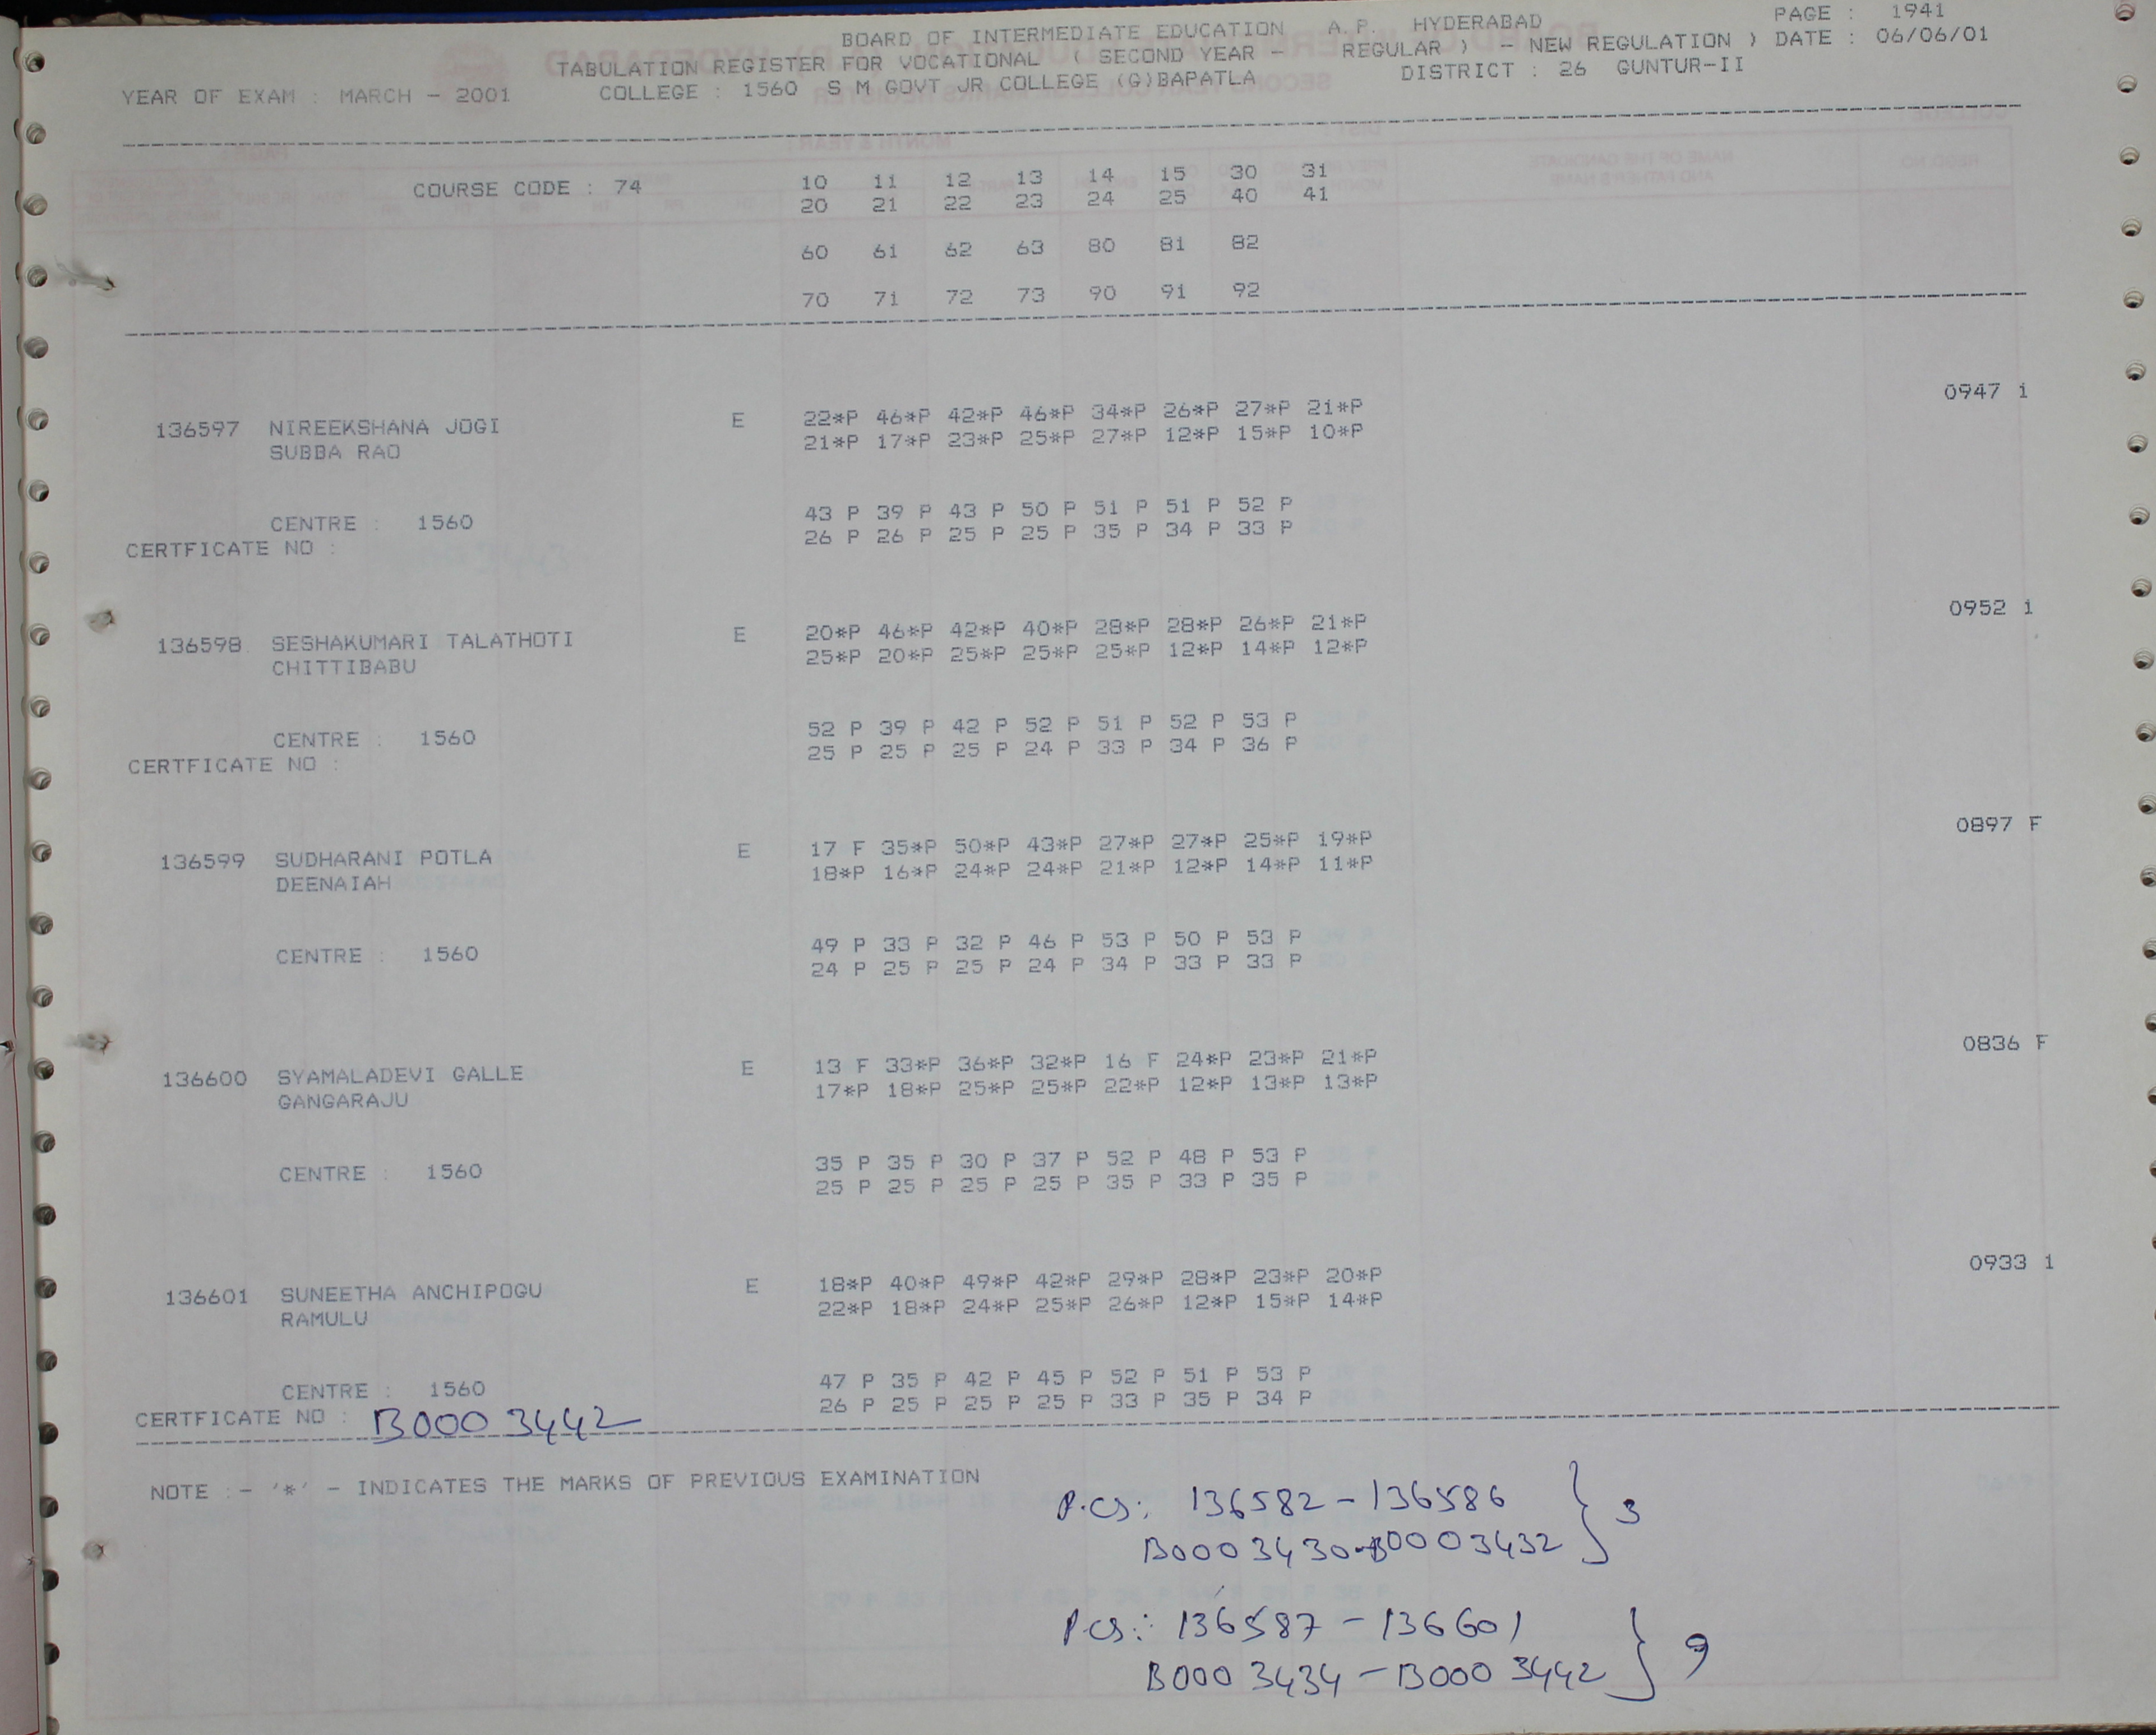 BOARD OF INTERMEDIATE EDUCATION A.P. HYDERABAD PAGE : 1941
TABULATION REGISTER FOR VOCATIONAL ( SECOND YEAR - REGULAR ) - NEW REGULATION ) DATE : 06/06/01
YEAR OF EXAM : MARCH - 2001 COLLEGE : 1560 S M GOVT JR COLLEGE (G)BAPATLA DISTRICT : 26 GUNTUR-II
COURSE CODE : 74 10 11 12 13 14 15 30 31
20 21 22 23 24 25 40 41
60 61 62 63 80 81 82
70 71 72 73 90 91 92
0947 i
136597 NIREEKSHANA JOGI E 22*P 46*P 42*P 46*P 34*P 26*P 27*P 21*P
SUBBA RAO 21*P 17*P 23*P 25*P 27*P 12*P 15*P 10*P
CENTRE : 1560 43 P 39 P 43 P 50 P 51 P 51 P 52 P
CERTFICATE NO : 26 P 26 P 25 P 25 P 35 P 34 P 33 P
0952 i
136598 SESHAKUMARI TALATHOTI E 20*P 46*P 42*P 40*P 28*P 28*P 26*P 21*P
CHITTIBABU 25*P 20*P 25*P 25*P 25*P 12*P 14*P 12*P
CENTRE : 1560 52 P 39 P 42 P 52 P 51 P 52 P 53 P
CERTFICATE NO : 25 P 25 P 25 P 24 P 33 P 34 P 36 P
0897 F
136599 SUDHARANI POTLA E 17 F 35*P 50*P 43*P 27*P 27*P 25*P 19*P
DEENAIAH 18*P 16*P 24*P 24*P 21*P 12*P 14*P 11*P
CENTRE : 1560 49 P 33 P 32 P 46 P 53 P 50 P 53 P
24 P 25 P 25 P 24 P 34 P 33 P 33 P
0836 F
136600 SYAMALADEVI GALLE E 13 F 33*P 36*P 32*P 16 F 24*P 23*P 21*P
GANGARAJU 17*P 18*P 25*P 25*P 22*P 12*P 13*P 13*P
CENTRE : 1560 35 P 35 P 30 P 37 P 52 P 48 P 53 P
25 P 25 P 25 P 25 P 35 P 33 P 35 P
0933 1
136601 SUNEETHA ANCHIPOGU E 18*P 40*P 49*P 42*P 29*P 28*P 23*P 20*P
RAMULU 22*P 18*P 24*P 25*P 26*P 12*P 15*P 14*P
CENTRE : 1560 47 P 35 P 42 P 45 P 52 P 51 P 53 P
CERTFICATE NO : B000 3442 26 P 25 P 25 P 25 P 33 P 35 P 34 P
NOTE :- '*' - INDICATES THE MARKS OF PREVIOUS EXAMINATION
P.cs: 136582 - 136586 } 3
B000 3430-B000 3432
P.cs: 136587 - 136601 } 9
B000 3434 - B000 3442